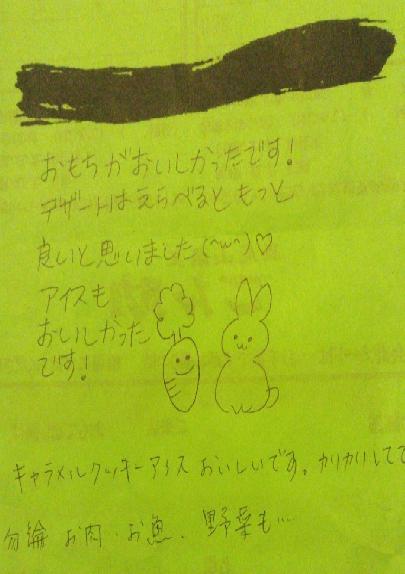 おもちがおいしかったです!
デザートはえらべるともっと
良いと思いました(^w^)♡
アイスも
おいしかった
です!
キャラメルクッキーアイスおいしいです。カリカリしてて
勿論 お肉・お魚、野菜も…